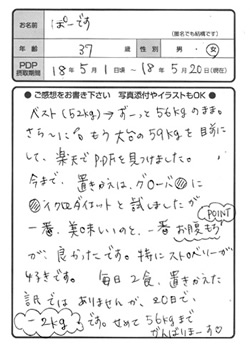 お名前 ぱーです
(匿名でも結構です)
年齢 37歳 性別 男・女
PDP摂取期間 18年5月1日頃 ～ 18年5月20日(現在)
●ご感想をお書き下さい 写真添付やイラストもOK●
ベスト(52kg)→ずーっと56kgのまま。
さらに もう大台の59kgを目前に
して、楽天でPDPを見つけました。
今まで、置きかえは、グローバ
イクロダイエットと試しましたが
一番、美味しいのと、一番お腹もち
POINT
が、良かったです。特にストロベリーが
好きです。毎日2食、置きかえた
訳ではありませんが、20日で、
-2kgです。せめて56kgまで
がんばりまーす♡